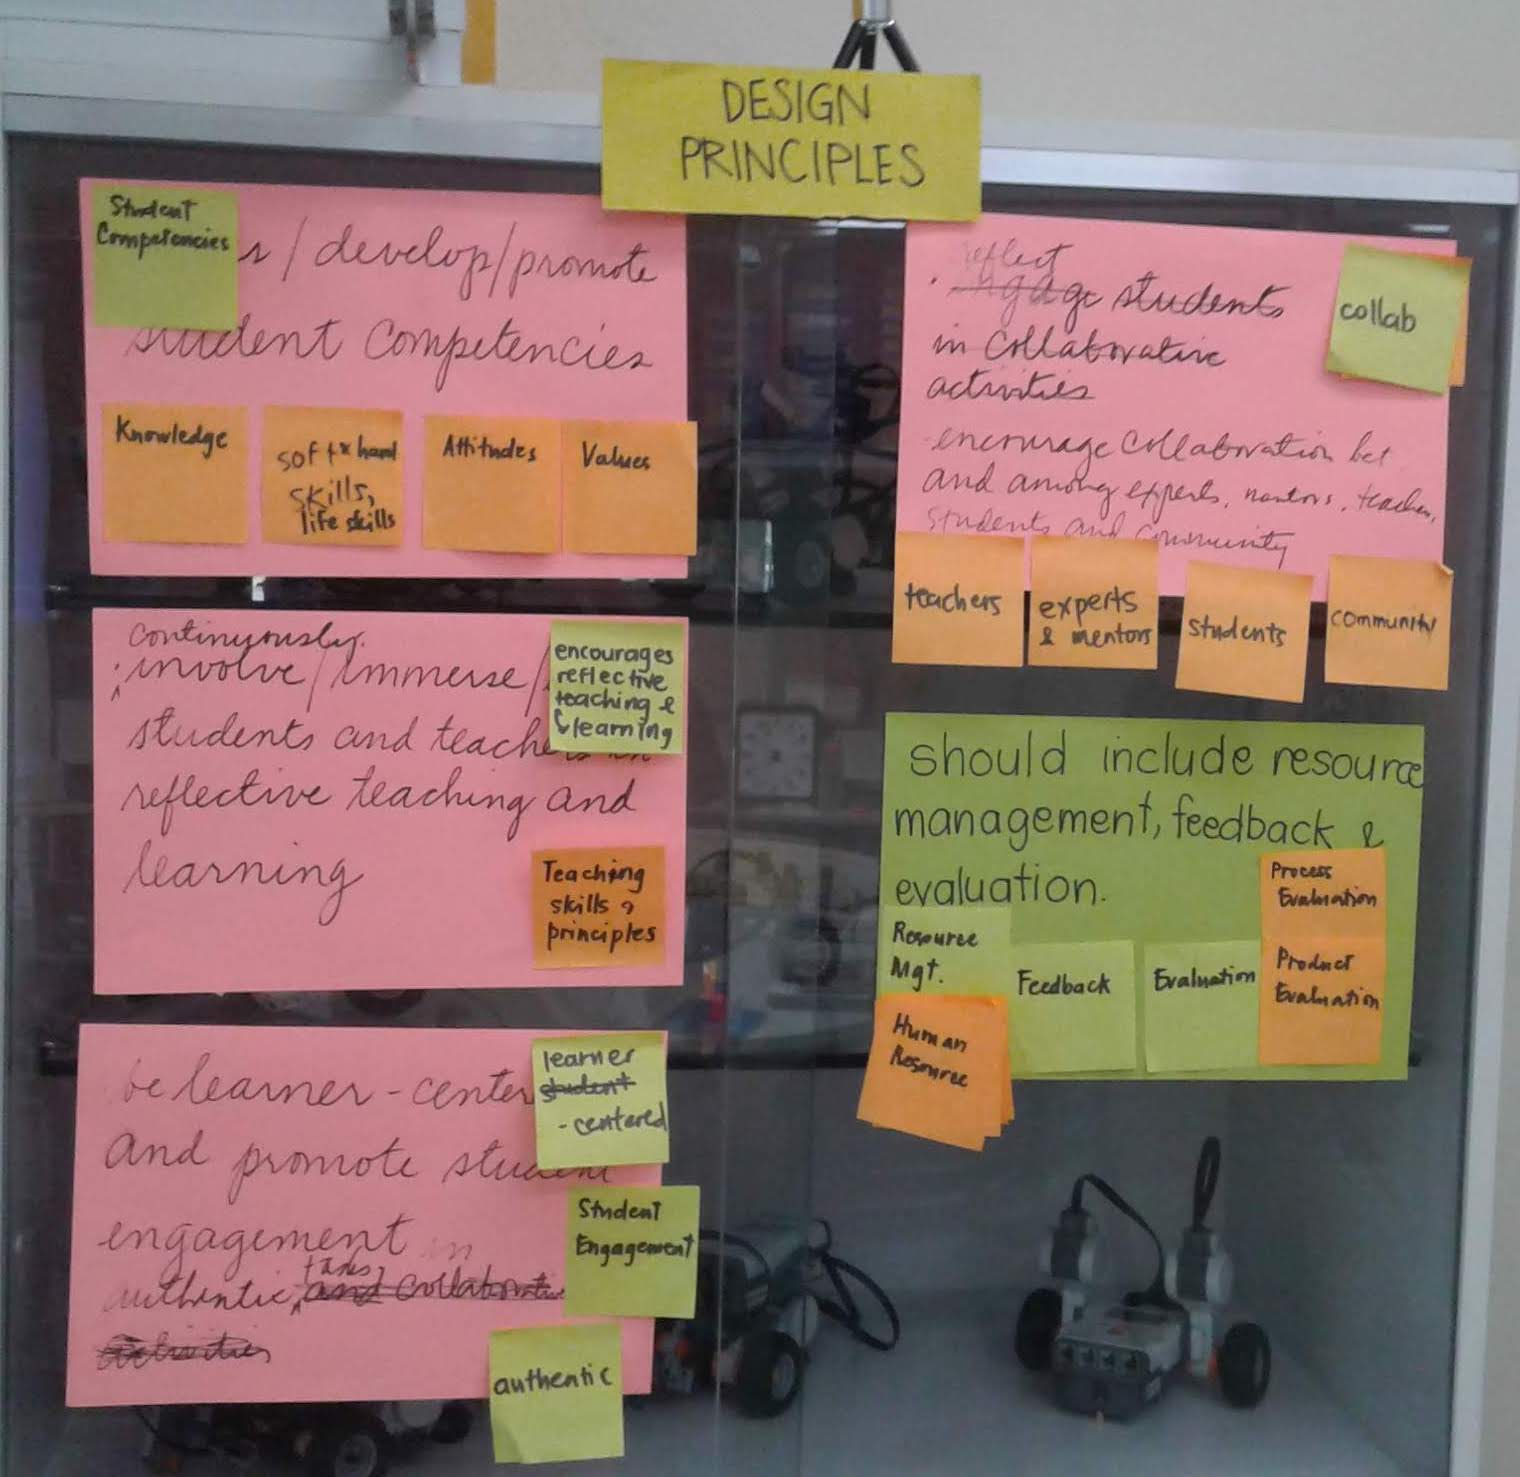 DESIGN
PRINCIPLES
Student
Competencies
s/develop/promote
student competencies
Knowledge
soft & hard
skills,
life skills
Attitudes
Values
continuously
involve/immerse/
students and teachers in
reflective teaching and
learning
encourages
reflective
teaching &
learning
Teaching
skills &
principles
be learner-center
and promote student
engagement in
tasks,
authentic, and collaborative
activities
learner
student
-centered
Student
Engagement
authentic
reflect
engage students
in collaborative
activities
-encourage collaboration bet
and among experts, mentors, teachers,
students and community
collab
teachers
experts
& mentors
students
community
should include resource
management, feedback &
evaluation.
Resource
Mgt.
Human
Resource
Feedback
Evaluation
Process
Evaluation
Product
Evaluation